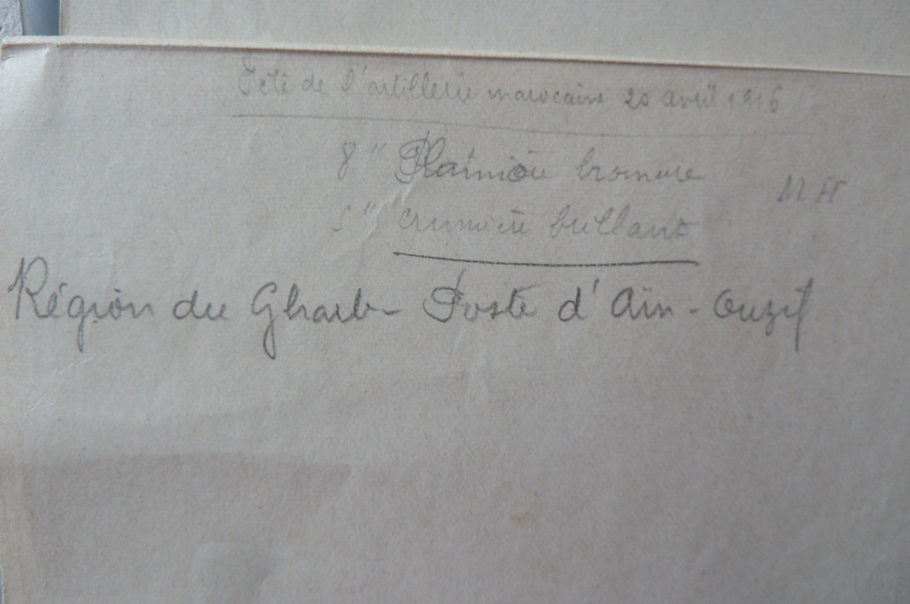 Fête de l'artillerie marocaine 20 avril 1916
8 " Platino bromure
5 " brillant
Région du Gharb - Poste d'Aïn-Ouzif